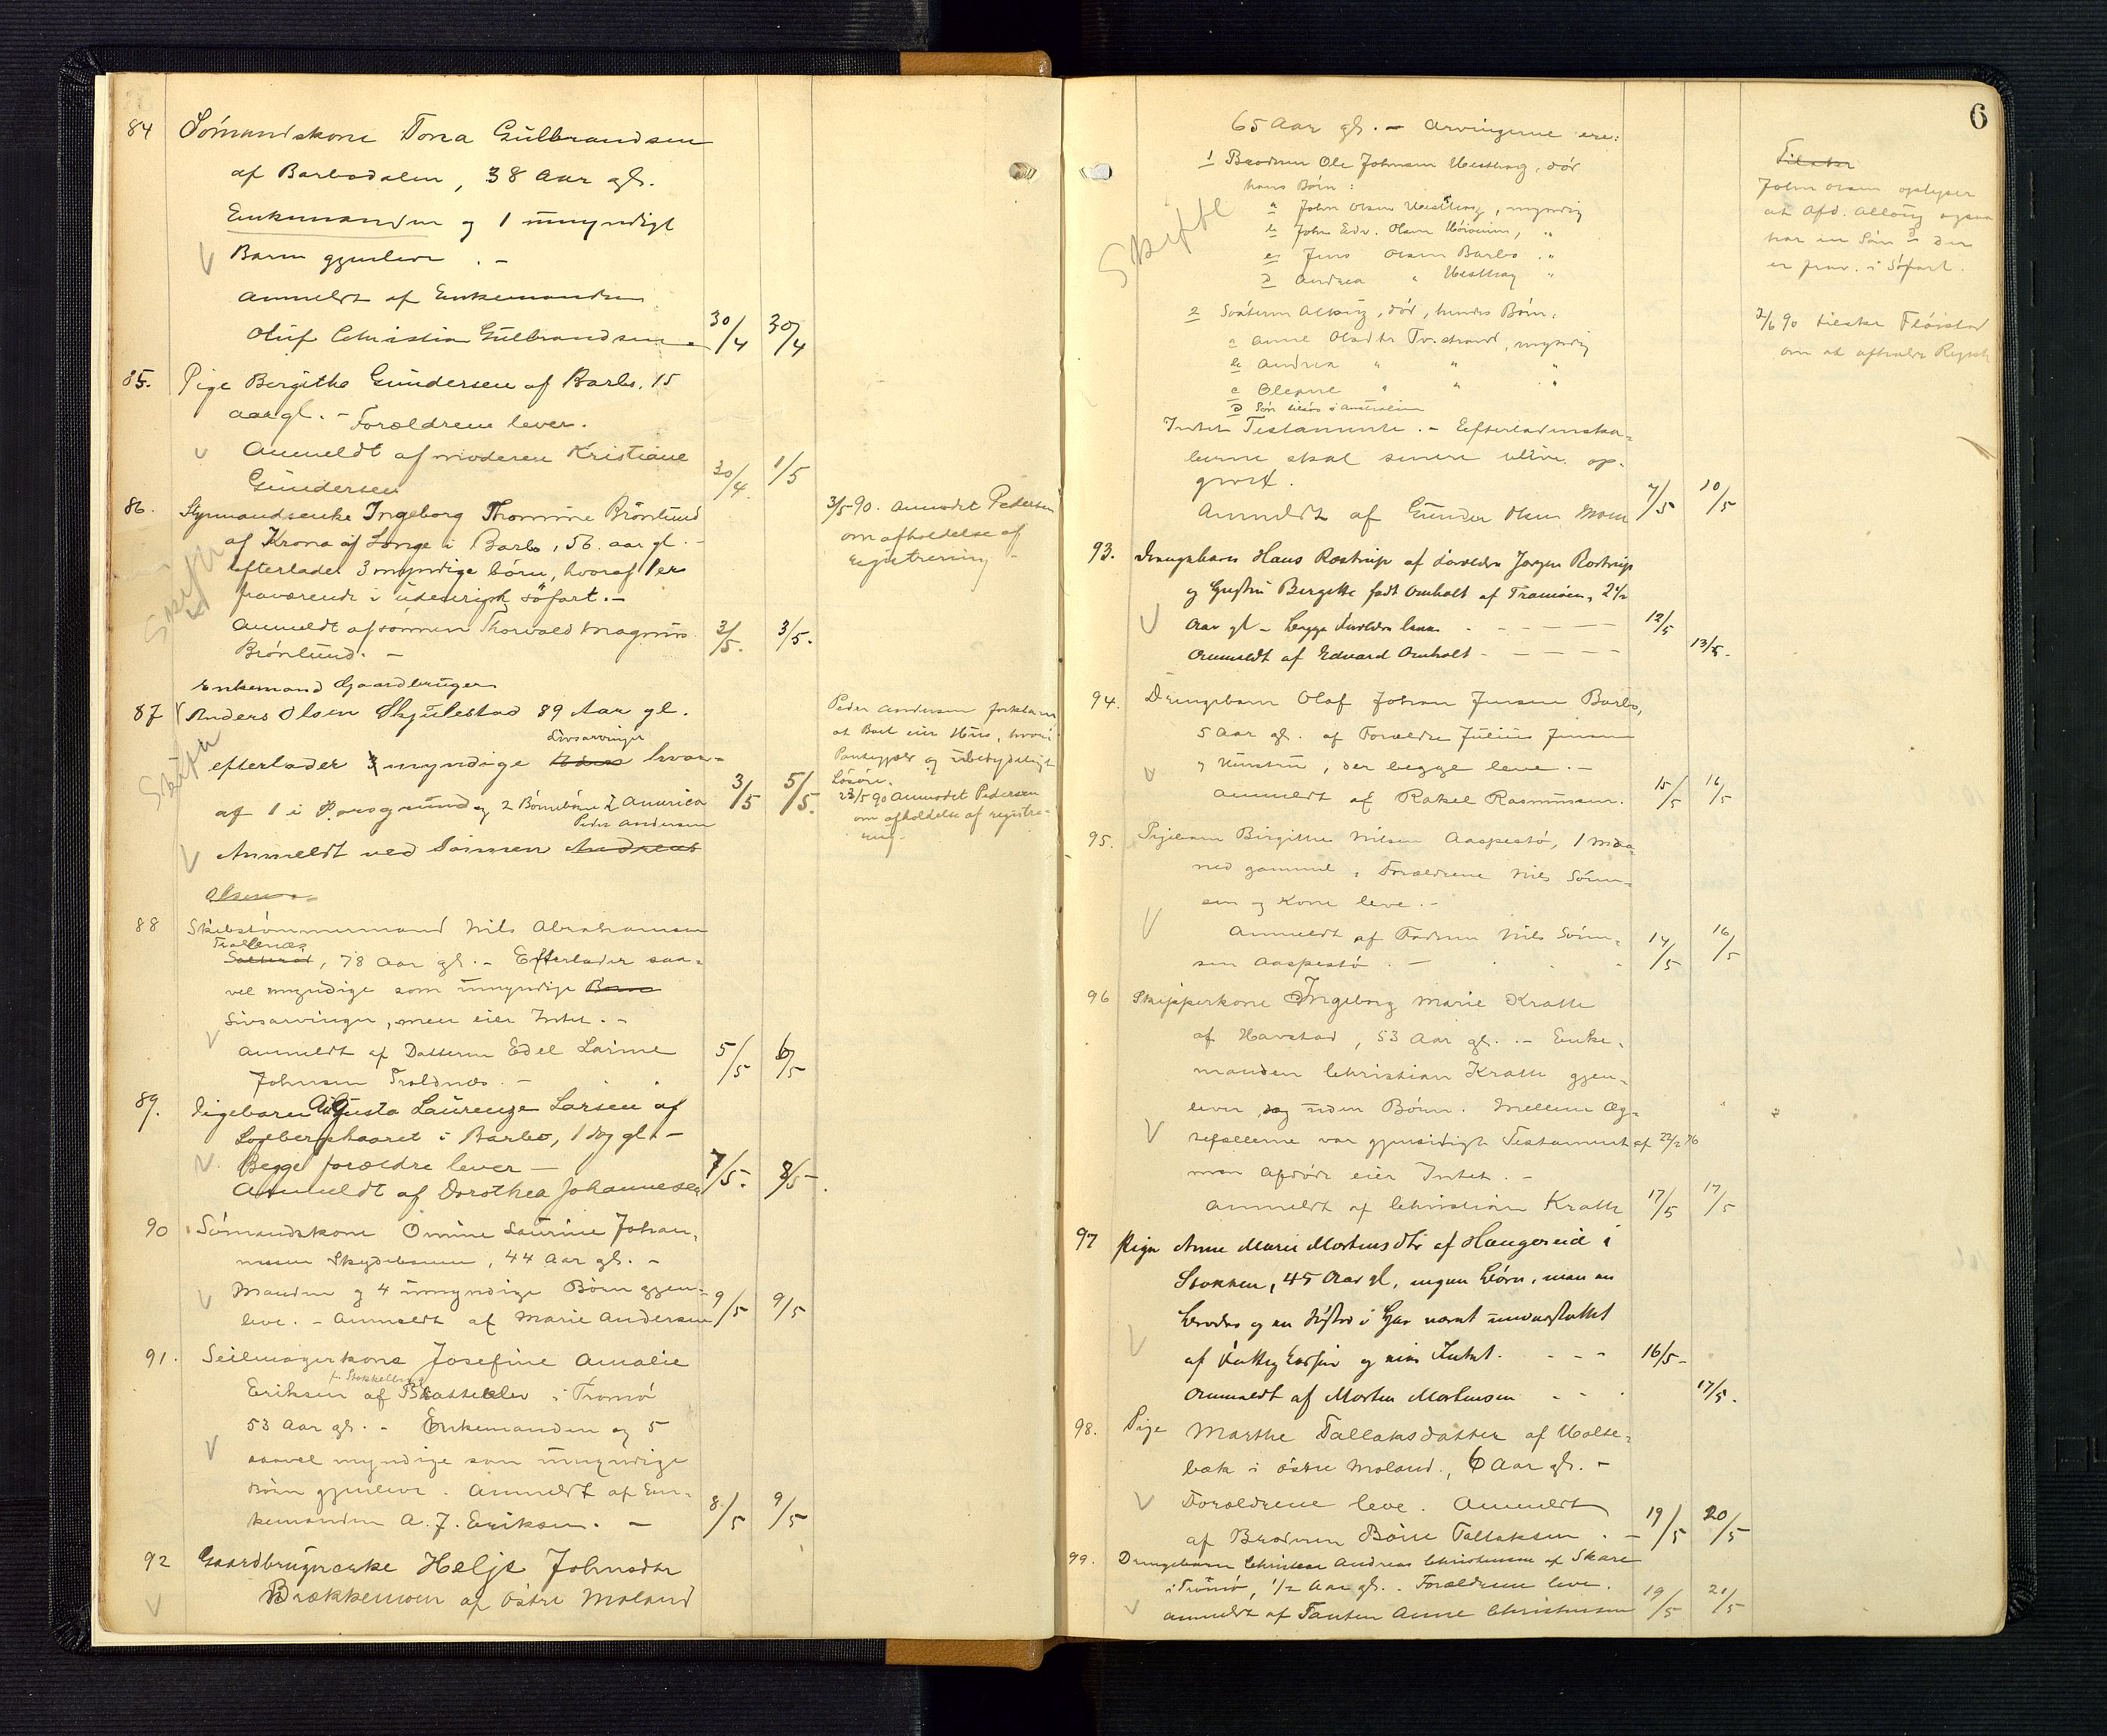 84 Sømandskone Tona Gulbrandsen
af Barbodalen, 38 Aar gl.
Enkemanden og 1 umyndigt
Barn gjenleve. -
Anmeldt af Enkemanden
Oluf Christian Gulbrandsen. 30/4 30/4
85. Pige Bergithe Gundersen af Barbo, 15
aar gl. - Forældrene lever.
Anmeldt af moderen Kristiane
Gundersen 30/4 1/5
86. Styrmandsenke Ingeborg Thomine Brönlund
af Krona af Longe i Barbo, 56 aar gl. -
efterlader 3 myndige börn, hvoraf 1 er
fraværende i udenrigsk söfart. -
Anmeldt af sønnen Thorvald Magnus
Brönlund. - 3/5. 3/5.
Skifte
3/5 90. Anmodet Pedersen
om afholdelse af
registrering -
Enkemand Gaardbruger
87 Anders Olsen Skjulestad 89 Aar gl.
Livsarvinger
efterlader 3 myndige hvor-
af 1 i Porsgrund og 2 Børnebørn i Amerika
Peder Andersen
Anmeldt ved Sønnen Andreas
Olsen 3/5 5/5.
Skifte
Peder Andersen forklarer
at Boet eier Hus, hvori
Pantegjæld og ubetydeligt
Løsøre.
23/5 90 Anmodet Pedersen
om afholdelse af registre-
ring.
88 Skibstømmermand Nils Abrahamsen
Troldnæs
, 78 Aar gl. - Efterlader saa-
vel myndige som umyndige Børn
Livsarvinger, men eier Intet. -
Anmeldt af Datteren Edel Lovine
Johnsen Troldnæs. - 5/5 6/5
89. Pigebarn Augusta Laurenze Larsen af
i Barbo, 1 dag gl. -
Begge forældre lever -
Anmeldt af Dorothea Johannesen 7/5. 8/5
90 Sømandskone Omine Laurine Johan-
nesen Skydebanen, 44 Aar gl. -
Manden og 4 umyndige Børn gjen-
leve. - Anmeldt af Marie Andersen 9/5 9/5
91. Seilmagerkone Josefine Amalie
Eriksen af Bratteklev i Tromø
53 Aar gl. - Enkemanden og 5
saavel myndige som umyndige
Børn gjenleve. Anmeldt af En-
kemanden A. J. Eriksen. - 8/5 9/5
92 Gaardbrugerenke Helje Johnsdtr
Brækkemoen af østre Moland
6
65 Aar gl. - Arvingerne ere:
1 Broderen Ole Johnsen Vesthag, død
hans Børn:
a John Olsen Vesthag, myndig
b John Edv. Olsen , "
c Jens Olsen Barbo. "
d Andrea " Vesthag "
2 Søsteren , død, hendes Børn:
a Anne Olsdtr Tvestrand, myndig
b Andrea " " "
c Olepine " " "
d Søn i Australien
Intet Testamente. - Efterladenska-
berne skal senere blive op-
givet.
Anmeldt af Gunder Olsen Moen 7/5 10/5
Skifte
John Olsen oplyser
at Afd. ogsaa
har en Søn d der
er frav. i Søfart.
2/6 90 tilskr Fløistad
om at afholde Regist
93. Drengebarn Hans Rostrup af Forældre Jørgen Rostrup
og Hustru Bergitte født Omholt af Tromøen, 2½
Aar gl - begge Forældre leve - 12/5
Anmeldt af Edvard Omholt - 13/5.
94. Drengebarn Olaf Johan Jensen Barbo,
5 Aar gl. af Forældre Julius Jensen
og Hustru, der begge leve. -
Anmeldt af Rakel Rasmussen. 15/5 16/5
95. Pigebarn Birgitte Nilsen Aaspestø, 1 Maa-
ned gammel, Forældrene Nils Sørn-
sen og Kone leve. -
Anmeldt af Faderen Nils Sørn-
sen Aaspestø. - 14/5 16/5
96 Skipperkone Ingeborg Marie Krath
af Havstad, 53 Aar gl. - Enke-
manden Christian Krath gjen-
lever, dog uden Børn. Mellem Æg-
tefællerne var gjensidigt Testament af 22/2 76
men Afdøde eier Intet. -
Anmeldt af Christian Krath 17/5 17/5
97 Pige Anne Marie Mortensdtr af Haugereid i
Stokken, 45 Aar gl, ingen Børn, men en
Broder og en Søster i Har været understøttet
af Fattigkassen og eier Intet. - - - 16/5
Anmeldt af Morten Mortensen - - 17/5.
98. Pige Marthe Tallaksdatter af Holte-
bæk i østre Moland., 6 Aar gl. -
Forældrene leve. Anmeldt
af Broderen Börre Tallaksen. - 19/5 20/5
99. Drengebarn Christian Andreas Christensen af Skare
i Tromø, 1/2 Aar gl. - Forældrene leve.
Anmeldt af Tanten Anne Christensen 19/5 21/5